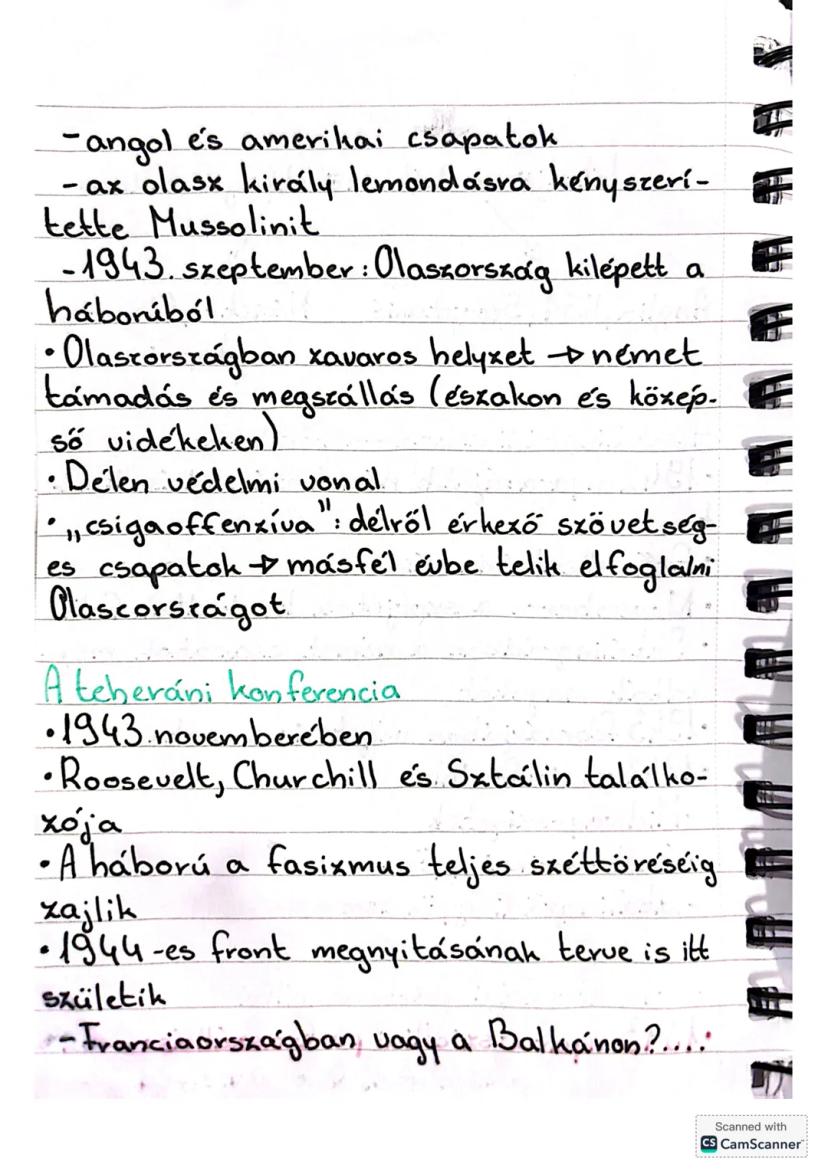 - angol és amerikai csapatok
- az olasz király lemondásra kényszerí-
tette Mussolinit
- 1943. szeptember: Olaszország kilépett a
háborúból
• Olaszországban zavaros helyzet → német
támadás és megszállás (északon és közép-
ső vidékeken)
• Délen védelmi vonal
• „csigaoffenzíva": délről érkező szövetség-
es csapatok → másfél évbe telik elfoglalni
Olaszországot
A teheráni konferencia
• 1943. novemberében
• Roosevelt, Churchill és Sztálin találko-
zója
• A háború a fasizmus teljes széttöréséig
zajlik
• 1944-es front megnyitásának terve is itt
születik
- Franciaországban, vagy a Balkánon?....
Scanned with
CS CamScanner